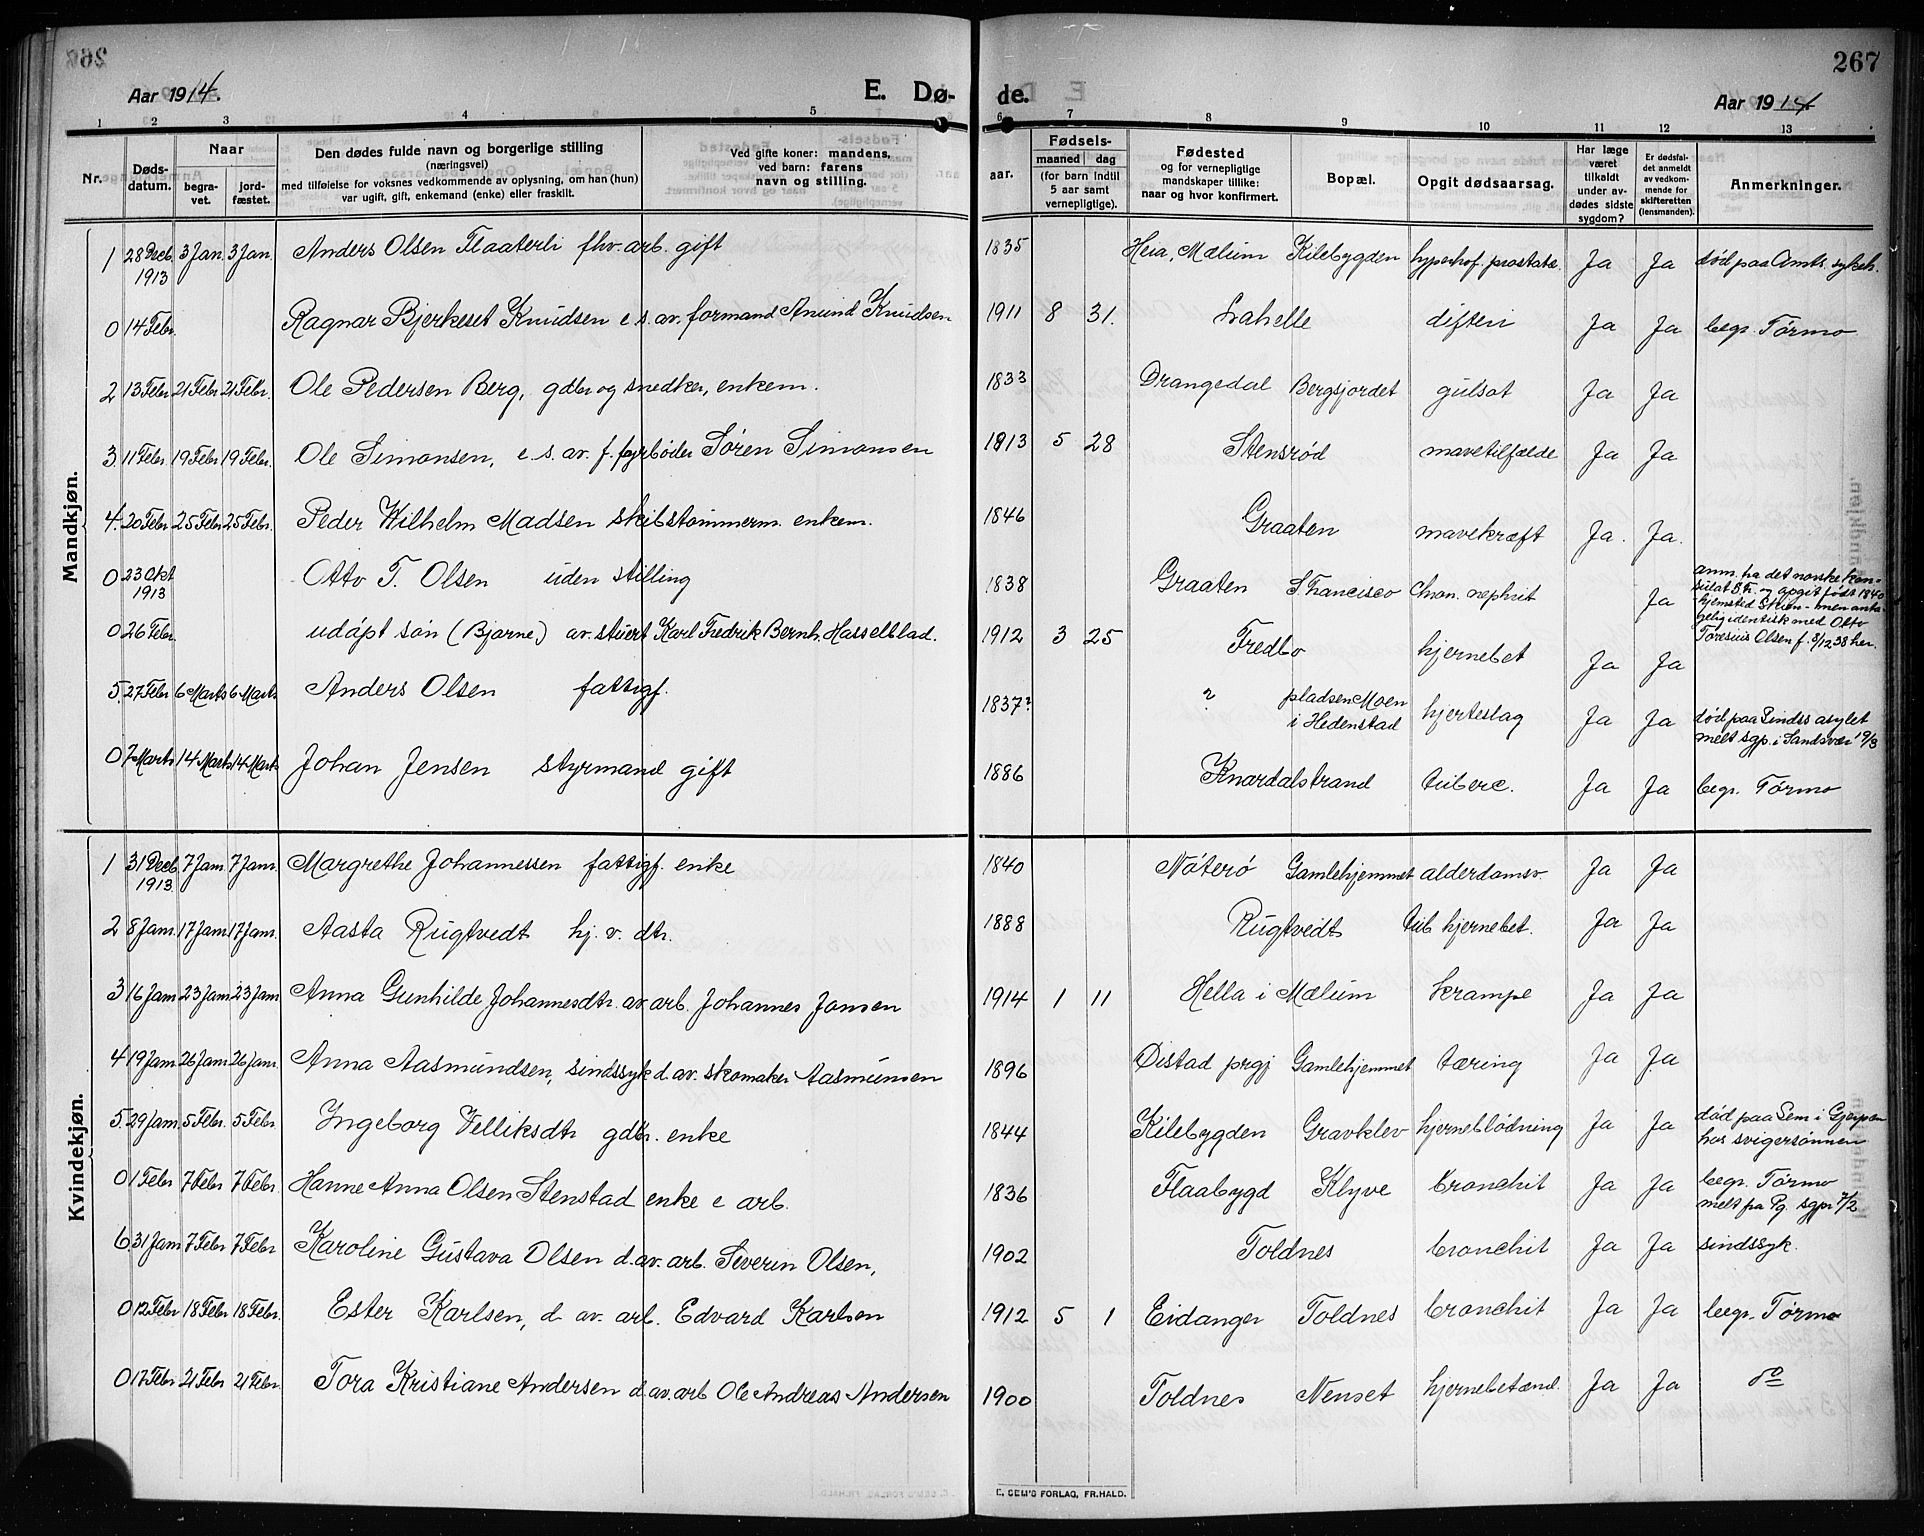 267
Aar 1914.
E. Dø-
de.
Aar 1914
1 2 3 4 5 6 7 8 9 10 11 12 13
Nr.
Døds-
datum.
Naar
begra-
vet.
jord-
fæstet.
Den dødes fulde navn og borgerlige stilling
(næringsvei)
med tilføielse for voksnes vedkommende av oplysning, om han (hun)
var ugift, gift, enkemand (enke) eller fraskilt.
Ved gifte koner: mandens,
ved barn: farens
navn og stilling.
aar.
Fødsels-
maaned dag
(for barn indtil
5 aar samt
vernepligtige).
Fødested
og for vernepligtige
mandskaper tillike:
naar og hvor konfirmert.
Bopæl.
Opgit dødsaarsag.
Har læge
været
tilkaldt
under av-
dødes sidste
sygdom?
Er dødsfal-
det anmeldt
av vedkom-
mende for
skifteretten
(lensmanden).
Anmerkninger.
Mandkjøn.
1 28 Decb. 1913 3 Jan. 3 Jan. Anders Olsen Flaaterli fhv. arb. gift 1835 Heia, Mælum Kilebygden hyperhof. prostatæ. Ja Ja død paa Amts sykeh.
0 14 Febr. Ragnar Bjerkeset Knudsen e s. av. formand Anund Knudsen 1911 8 31. Lahelle difteri Ja Ja begr. Tørmo
2 13 Febr 21 Febr 21 Febr. Ole Pedersen Berg, gdbr og snedker, enkem. 1833 Drangedal Bergsjordet gulsot Ja Ja
3 11 Febr 19 Febr 19 Febr. Ole Simonsen, e. s. av. f. fyrbøder Søren Simonsen 1913 5 28 Stensrød mavetilfælde Ja Ja
4. 20 Febr 25 Febr 25 Febr. Peder Wilhelm Madsen skibstømmerm. enkem. 1846 Graaten mavekræft Ja. Ja.
0 23 Okt 1913 Otto T. Olsen uden stilling 1838 Graaten S. Francisco Chron. nephrit Ja anm. fra det norske kon-
sulat S. Fr. og opgit født 1840
hjemsted Skien - men anta-
gelig identisk med Otto
Toresius Olsen f. 3/12 38 her.
0 26 Febr. udøpt søn (Bjarne) av stuert Karl Fredrik Bernh. Hasselblad. 1912 3 25 Fredbo hjernebet Ja Ja
5. 27 Febr 6 Marts 6 Marts Anders Olsen fattigf. 1837? ? pladsen Moen
i Hedenstad hjerteslag Ja Ja død paa Sindss asylet
melt sgp. i Sandsvær 9/3
0 7 Marts 14 Marts 14 Marts Johan Jensen styrmand gift 1886 Knardalstrand tuberc. Ja Ja begr. Tørmo
Kvindekjøn.
1 31 Decb. 1913 7 Jan. 7 Jan. Margrethe Johannessen fattigf. enke 1840 Nøterø Gamlehjemmet alderdomsv. Ja Ja
2 8 Jan. 17 Jan. 17 Jan. Aasta Rugtvedt hj. v. dtr. 1888 Rugtvedt tub hjernebet. Ja Ja
3 16 Jan 23 Jan 23 Jan Anna Gunhilde Johannesdtr. av arb. Johannes Jansen 1914 1 11 Hella i Mælum krampe Ja Ja
4 19 Jan. 26 Jan. 26 Jan. Anna Aasmundsen, sindssyk d. av. skomaker Aasmunsen 1896 Øistad prgj Gamlehjemmet tæring Ja Ja
5. 29 Jan. 5 Febr. 5 Febr. Ingeborg Velliksdtr gdbr. enke 1844 Kilebygden Gravklev hjerneblødning Ja Ja død paa Sem i Gjerpen
hos svigersønnen
0 1 Febr 7 Febr 7 Febr. Hanne Anna Olsen Stenstad enke e arb. 1836 Flaabygd Klyve bronchit Ja Ja begr. Tørmo
melt fra Pg. sgpr 7/2
6 31 Jan 7 Febr 7 Febr Karoline Gustava Olsen d. av. arb. Severin Olsen, 1902 Toldnes bronchit Ja Ja sindssyk.
0 12 Febr 18 Febr 18 Febr. Ester Karlsen, d av. arb. Edvard Karlsen 1912 5 1 Eidanger Toldnes bronchit Ja Ja begr. Tørmo
0 17 Febr 21 Febr 21 Febr. Tora Kristiane Andersen d. av. arb Ole Andreas Andersen 1900 Toldnes Nenset hjernebetænd. Ja Ja do
E. SEM'S FORLAG, FR.HALD.